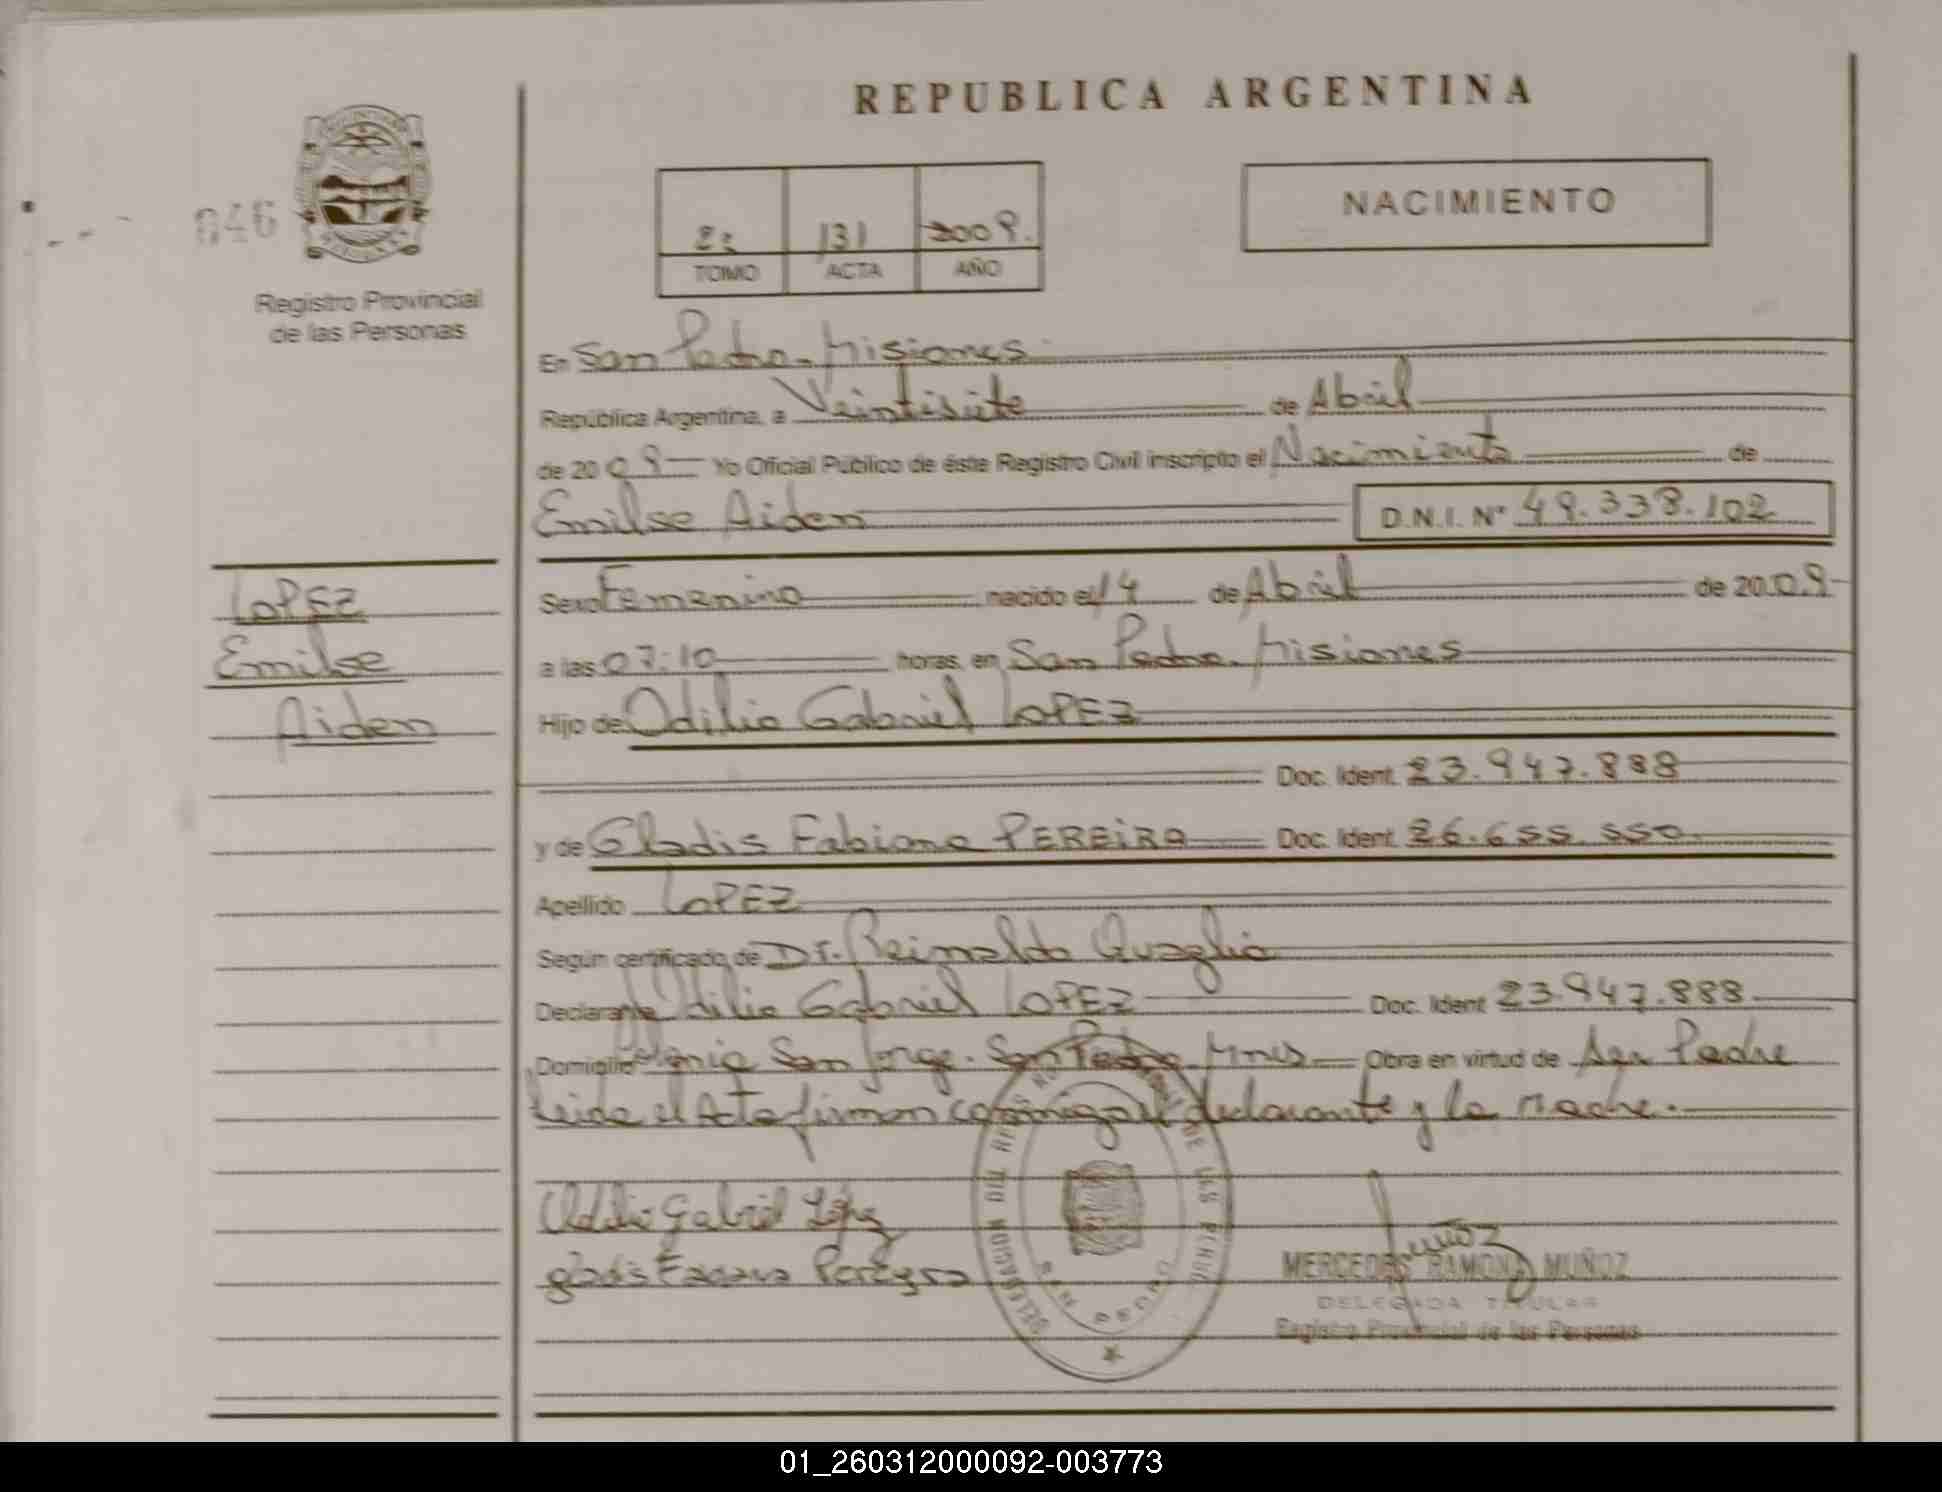 REPUBLICA ARGENTINA
046
Registro Provincial
de las Personas
2: 131 2009.
TOMO ACTA AÑO
NACIMIENTO
En San Pedro - Misiones
República Argentina, a Veintisiete de Abril
de 2009 Yo Oficial Público de éste Registro Civil inscripto el Nacimiento de
Emilse Aiden D.N.I. N° 49.338.102
LOPEZ
Emilse
Aiden
Sexo Femenino nacido el 14 de Abril de 2009
a las 07:10 horas, en San Pedro - Misiones
Hijo de Odilio Gabriel LOPEZ
Doc. Ident. 23.947.888
y de Gladis Fabiana PEREIRA Doc. Ident. 26.655.550
Apellido LOPEZ
Según certificado de Dr. Reinaldo Quaglia
Declarante Odilio Gabriel LOPEZ Doc. Ident. 23.947.888
Domicilio San Jorge - San Pedro Mnes Obra en virtud de Ser Padre
leida el Acta firman conmigo el declarante y la Madre.
Odilio Gabriel López
gladis Pereyra
SAN PEDRO
Muñoz
MERCEDES RAMONA MUÑOZ
DELEGADA TITULAR
Registro Provincial de las Personas
01_260312000092-003773